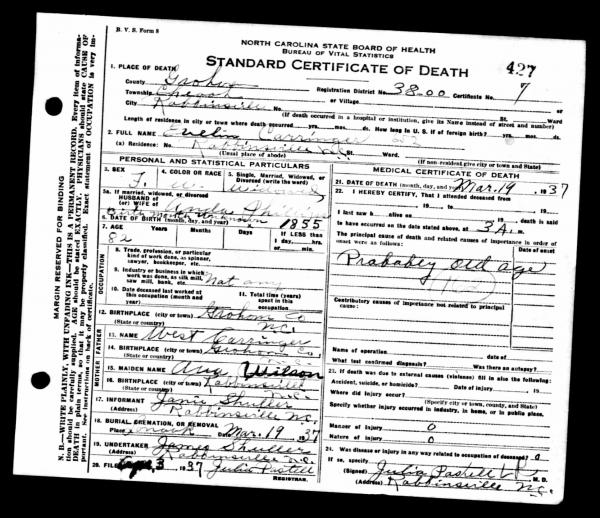 B. V. S. Form 8
NORTH CAROLINA STATE BOARD OF HEALTH
BUREAU OF VITAL STATISTICS
STANDARD CERTIFICATE OF DEATH
427
1. PLACE OF DEATH
County Graham
Registration District No. 38-00 Certificate No. 7
Township Cheoah or Village
City Robbinsville No. St. Ward
(If death occurred in a hospital or institution, give its Name instead of street and number)
Length of residence in city or town where death occurred yrs. mos. ds. How long U. S. if of foreign birth? yrs. mos. ds.
2. FULL NAME Carringer
(a) Residence: No. Robbinsville N.C. St. Ward
(Usual place of abode) (If non-resident give city or town and State)
PERSONAL AND STATISTICAL PARTICULARS
3. SEX F. 4. COLOR OR RACE W 5. Single, Married, Widowed, or Divorced (write the word)
5a. If married, widowed, or divorced
HUSBAND of
(or) WIFE of
6. DATE OF BIRTH (month, day, and year) 1855
7. AGE Years Months Days If LESS than 1 day, hrs. or min.
82
OCCUPATION
8. Trade, profession, or particular kind of work done, as spinner, sawyer, bookkeeper, etc.
9. Industry or business in which work was done, as silk mill, saw mill, bank, etc. Not any
10. Date deceased last worked at this occupation (month and year)
11. Total time (years) spent in this occupation
12. BIRTHPLACE (city or town) Graham Co
(State or country) N.C.
FATHER
13. NAME West Carringer
14. BIRTHPLACE (city or town) Graham Co.
(State or country)
MOTHER
15. MAIDEN NAME Ann Wilson
16. BIRTHPLACE (city or town) Robbinsville
(State or country) N.C.
17. INFORMANT Janie Shuller
(Address) Robbinsville N.C.
18. BURIAL, CREMATION, OR REMOVAL
Place Date Mar. 19 1937
19. UNDERTAKER James Shuller
(Address) Robbinsville N.C.
20. FILED Apr 3 1937 Julia Pastell
REGISTRAR.
MEDICAL CERTIFICATE OF DEATH
21. DATE OF DEATH (month, day, and year) Mar. 19, 1937
22. I HEREBY CERTIFY, That I attended deceased from
, 19 , to , 19
I last saw h alive on , 19 , death is said
to have occurred on the date stated above, at 3 A. m.
The principal cause of death and related causes of importance in order of onset were as follows: Date of onset
Probably old age
Contributory causes of importance not related to principal cause:
Name of operation Date of
What test confirmed diagnosis? Was there an autopsy?
23. If death was due to external causes (violence) fill in also the following:
Accident, suicide, or homicide? Date of injury , 19
Where did injury occur?
(Specify city or town, county, and State)
Specify whether injury occurred in industry, in home, or in public place.
Manner of injury 0
Nature of injury 0
24. Was disease or injury in any way related to occupation of deceased? 0
If so, specify
(Signed) Julia Pastell M. D.
(Address) Robbinsville N.C.
MARGIN RESERVED FOR BINDING
N. B.—WRITE PLAINLY, WITH UNFADING INK—THIS IS A PERMANENT RECORD. Every item of information should be carefully supplied. AGE should be stated EXACTLY. PHYSICIANS should state CAUSE OF DEATH in plain terms, so that it may be properly classified. Exact statement of OCCUPATION is very important. See instructions on back of certificate.